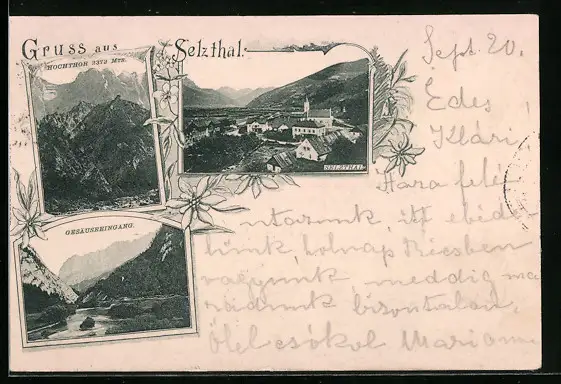 Gruss aus Selzthal.
HOCHTHOR 2372 MTR.
SELZTHAL
GESÄUSEEINGANG.
Sept. 20.
Édes
Klári,
Haza felé
utazunk, itt ebéde-
lünk, holnap Bécsben
vagyunk, meddig ma
radunk bizontalan,
Ölel csókol Mariann